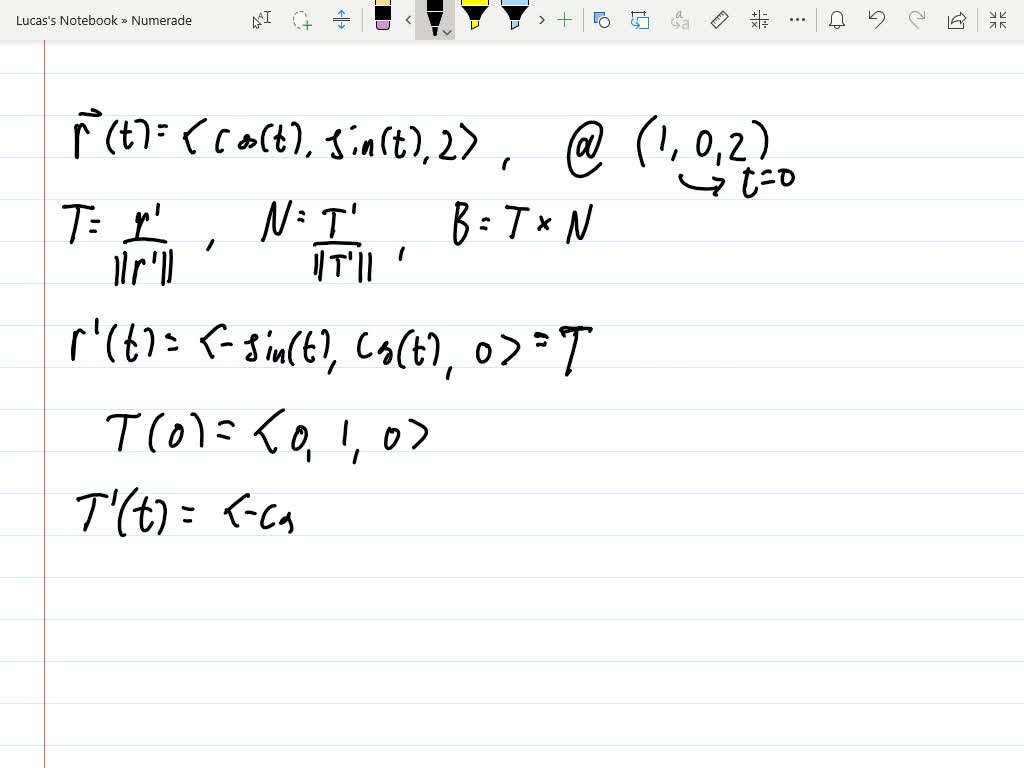 Lucas's Notebook » Numerade
r⃗(t) = <cos(t), sin(t), 2>, @ (1, 0, 2)
t=0
T = r'/||r'||, N = T'/||T'||, B = T × N
r'(t) = <-sin(t), cos(t), 0> = T
T(0) = <0, 1, 0>
T'(t) = <-cos